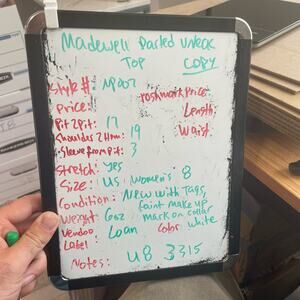 Madewell Darted Unlock
TOP COPY
Style #: NP007
Poshmark Price
Price:
Length
Pit 2 pit: 17
Waist
Shoulder 2 Hem: 19
Sleeve from pit: 3
Stretch: yes
Size: US women's 8
Condition: New with Tags,
faint make up
mark on collar
Weight: 6oz
Color white
Vendoo Label: Loan
Notes: U8 3315